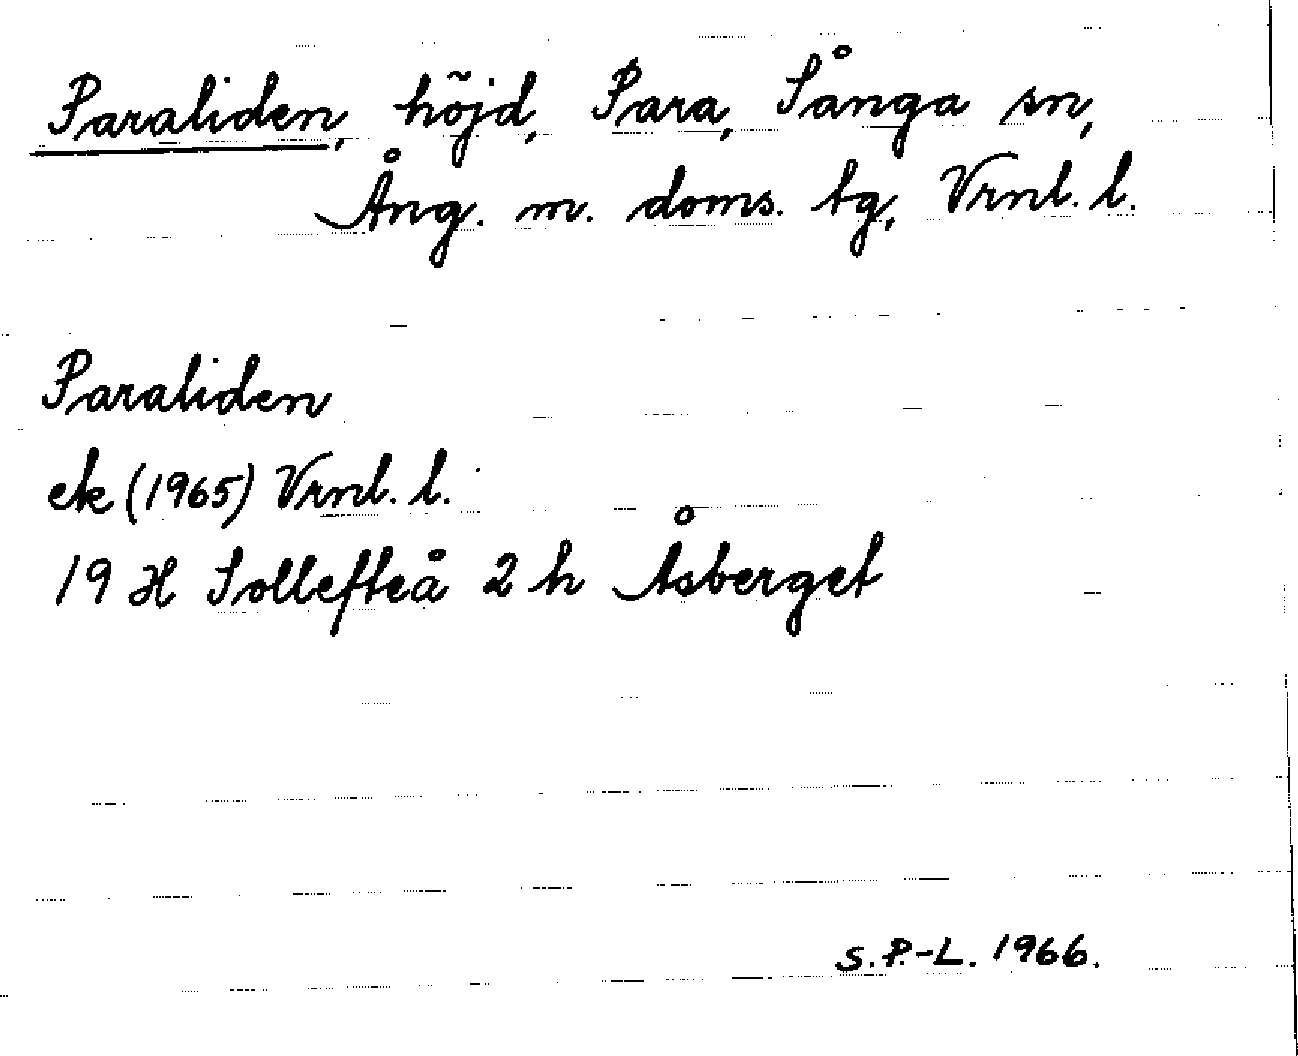 Paraliden, höjd, Para, Sånga sn,
Ång. m. doms. tg, Vrnl. l.
Paraliden
ek (1965) Vrnl. l.
19 H Sollefteå 2 h Åsberget
S.P.-L. 1966.